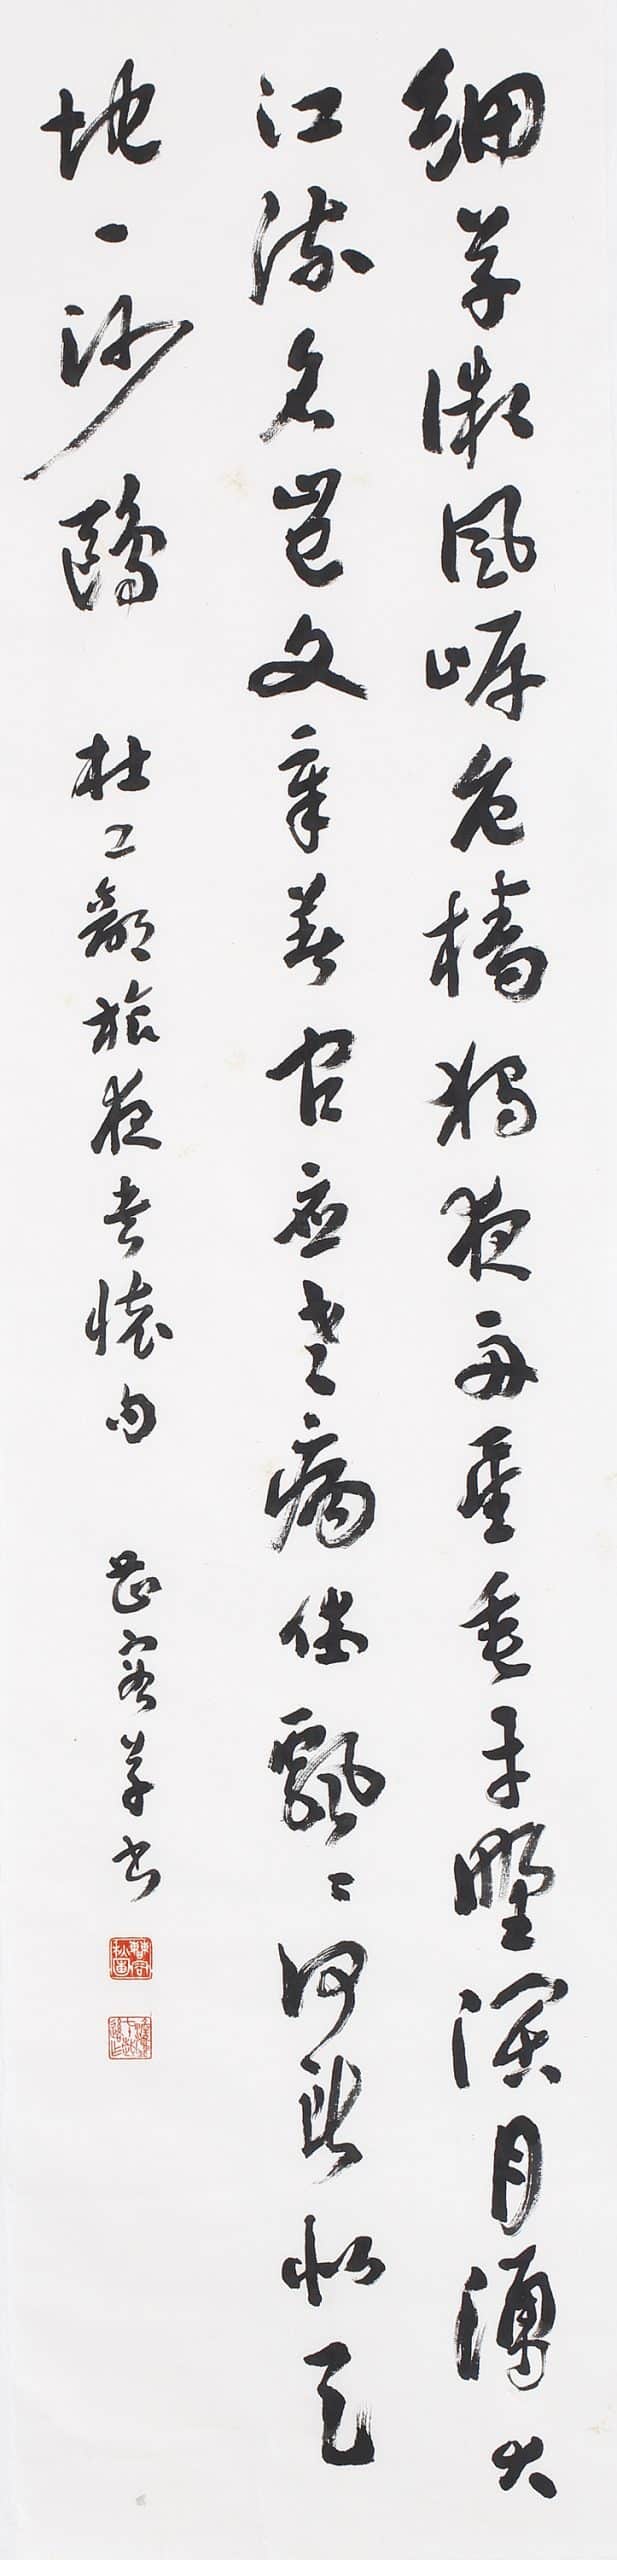 細草微風岸危檣獨夜舟星垂平野濶月湧大
江流名豈文章著官應老病休飄々何所似天
地一沙鷗 杜工部旅夜書懷句 曹容草書
曹容秋圃